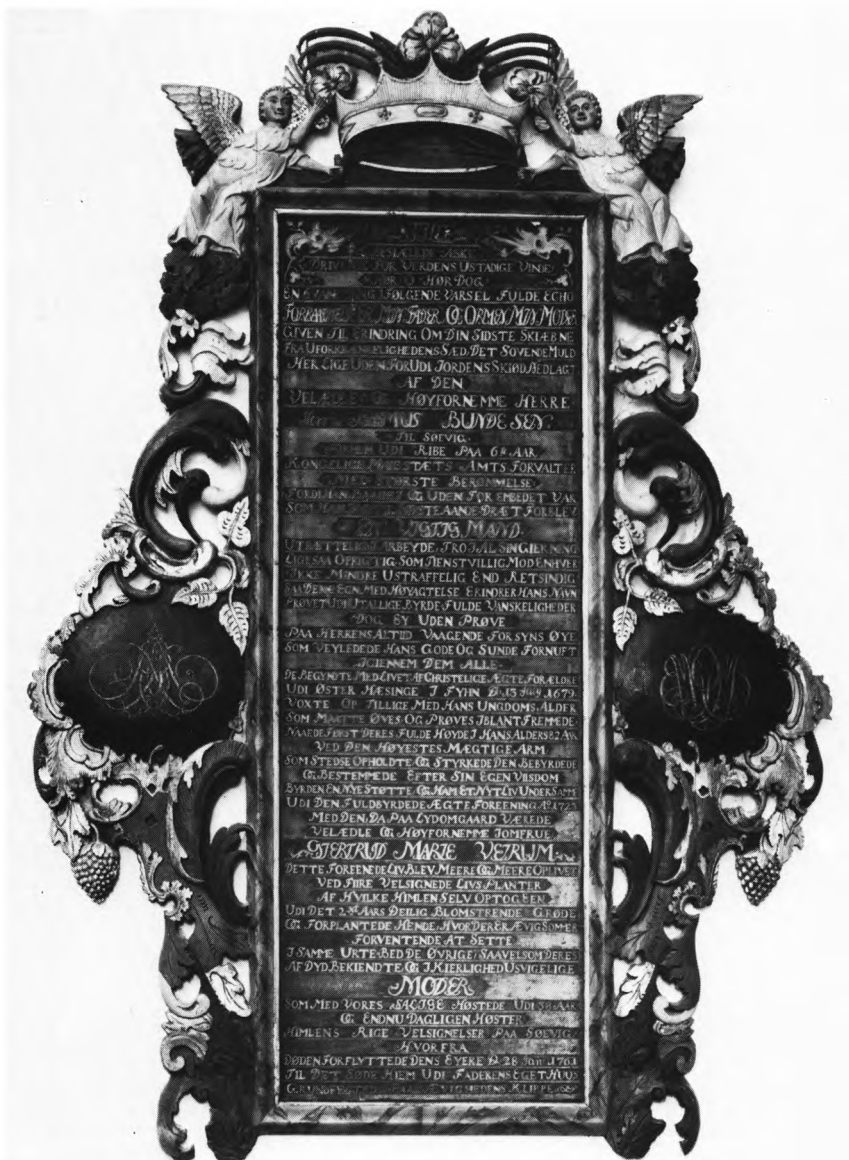 DRIVES FOR VERDENS USTADIGE VINDE
HØR DOG
FØLGENDE VARSEL FULDE ECHO
MIN FADER OG ORMEN MIN MODER
GIVEN TIL ERINDRING OM DIN SIDSTE SKIÆBNE
FRA UFORKRÆNKELIGHEDENS SÆD, DET SOVENDE MULD
HER LIGE UDEN FOR UDI JORDENS SKIØD NEDLAGT
AF DEN
VELÆDLE OG HØYFORNEMME HERRE
BUNDESEN
TIL SØEVIG
UDI RIBE PAA 6 AAR
KONGELIGE MAJESTÆTS AMTS FORVALTER
STØRSTE BERØMMELSE
FORDI HAN BAADE I OG UDEN FOR EMBEDET VAR
SOM HAN AANDE DRÆT FORBLEV
MAND
UTRÆTTELIG I ARBEYDE, TRO I AL SIN GIERNING
LIGE SAA OPRIGTIG SOM TIENSTVILLIG MOD ENHVER
IKKE MINDRE USTRAFFELIG END RETSINDIG
SAA DENNE EGN MED HØYAGTELSE ERINDRER HANS NAVN
PRØVET UDI UTALLIGE BYRDE FULDE VANSKELIGHEDER
DOG EY UDEN PRØVE
PAA HERRENS ALTID VAAGENDE FORSYNS ØYE
SOM VEYLEDEDE HANS GODE OG SUNDE FORNUFT
IGIENNEM DEM ALLE
DE BEGYNDTE MED LIVET AF CHRISTELIGE ÆGTE FORÆLDRE
UDI ØSTER HÆSINGE I FYHN D. 13 1679
VOXTE OP TILLIGE MED HANS UNGDOMS ALDER
SOM MAATTE ØVES OG PRØVES IBLANT FREMMEDE
NAAEDE FØRST DERES FULDE HØYDE I HANS ALDERS 82 AAR
VED DEN HØYESTES MÆGTIGE ARM
SOM STEDSE OPHOLDTE OG STYRKEDE DEN BEBYRDEDE
OG BESTEMMEDE EFTER SIN EGEN VIISDOM
BYRDEN EN NYE STØTTE OG HAM ET NYT LIV UNDER SAMME
UDI DEN FULDBYRDEDE ÆGTE FOREENING Aº 1723
MED DEN DA PAA LYDOMGAARD VÆREDE
VELÆDLE OG HØYFORNEMME JOMFRUE
GIERTRUD MARIE VETRUM
DETTE FOREENEDE LIV BLEV MEERE OG MEERE OPLIVET
VED FIIRE VELSIGNEDE LIVS PLANTER
AF HVILKE HIMLEN SELV OPTOG EEN
UDI DET 2det AARS DEILIG BLOMSTRENDE GRØDE
OG FORPLANTEDE HENDE, HVOR DER ER ÆVIG SOMMER
FORVENTENDE AT SETTE
I SAMME URTE BED DE ØVRIGE, SAAVEL SOM DERES
AF DYD BEKIENDTE OG I KIERLIGHED USVIGELIGE
MODER
SOM MED VORES SALIGE HØSTEDE UDI AAR
OG ENDNU DAGLIGEN HØSTER
HIMLENS RIGE VELSIGNELSER PAA SØEVIG
HVORFRA
DØDEN FORFLYTTEDE DENS EYERE D. 28 Jan. 1761
TIL DET SØDE HIEM UDI FADERENS EGET HUUS
KLIPPE